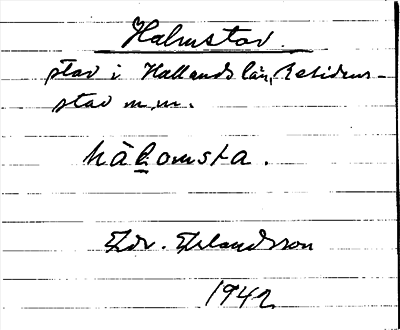 Halmstad.
stad i Hallands län, Residens-
stad m.m.
håḷomsta.
Edv. Erlandsson
1942